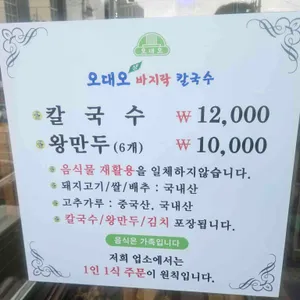 오대오
오대오 바지락 칼국수
칼국수 ₩ 12,000
왕만두(6개) ₩ 10,000
음식물 재활용을 일체하지않습니다.
돼지고기/쌀/배추 : 국내산
고추가루 : 중국산, 국내산
칼국수/왕만두/김치 포장됩니다.
음식은 가족입니다
저희 업소에서는
1인 1식 주문이 원칙입니다.